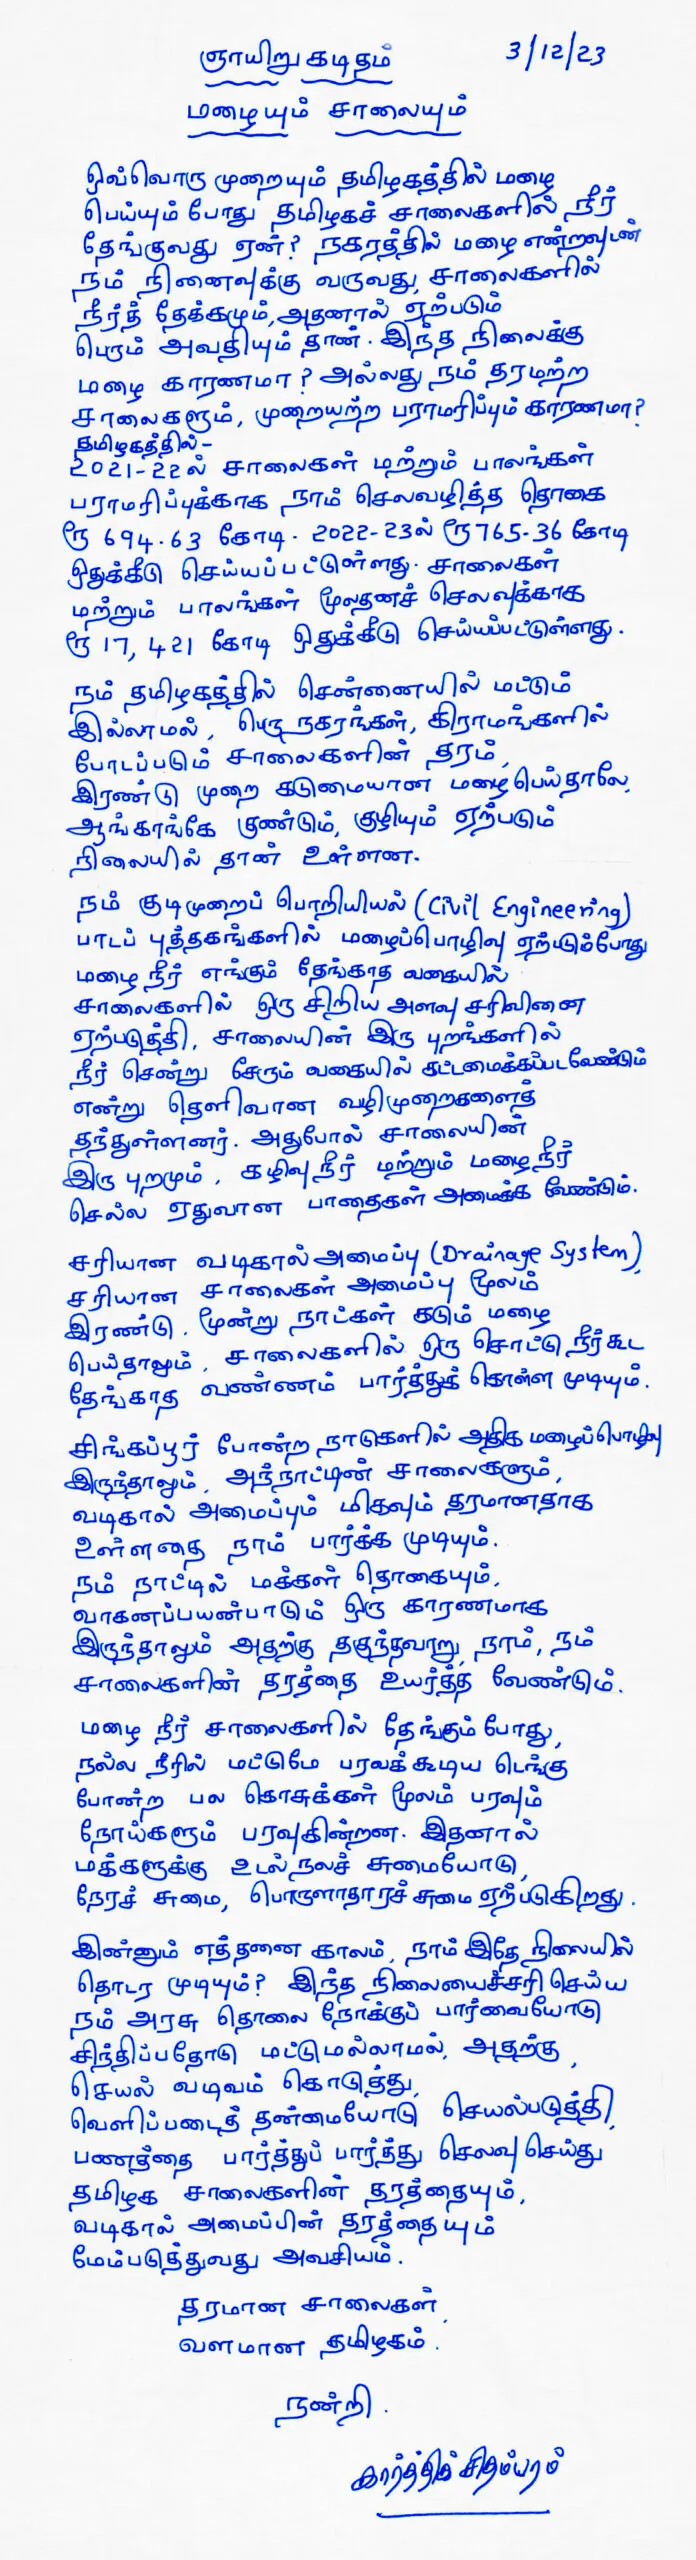 ஞாயிறு கடிதம் 3/12/23
மழையும் சாலையும்
ஒவ்வொரு முறையும் தமிழகத்தில் மழை
பெய்யும் போது தமிழகச் சாலைகளில் நீர்
தேங்குவது ஏன்? நகரத்தில் மழை என்றவுடன்
நம் நினைவுக்கு வருவது, சாலைகளில்
நீர்த் தேக்கமும், அதனால் ஏற்படும்
பெரும் அவதியும் தான். இந்த நிலைக்கு
மழை காரணமா? அல்லது நம் தரமற்ற
சாலைகளும், முறையற்ற பராமரிப்பும் காரணமா?
தமிழகத்தில் -
2021-22ல் சாலைகள் மற்றும் பாலங்கள்
பராமரிப்புக்காக நாம் செலவழித்த தொகை
ரூ 694.63 கோடி. 2022-23ல் ரூ 765.36 கோடி
ஒதுக்கீடு செய்யப்பட்டுள்ளது. சாலைகள்
மற்றும் பாலங்கள் மூலதனச் செலவுக்காக
ரூ 17,421 கோடி ஒதுக்கீடு செய்யப்பட்டுள்ளது.
நம் தமிழகத்தில் சென்னையில் மட்டும்
இல்லாமல், பெருநகரங்கள், கிராமங்களில்
போடப்படும் சாலைகளின் தரம்,
இரண்டு முறை கடுமையான மழை பெய்தாலே,
ஆங்காங்கே குண்டும், குழியும் ஏற்படும்
நிலையில் தான் உள்ளன.
நம் குடிமுறைப் பொறியியல் (Civil Engineering)
பாடப் புத்தகங்களில் மழைப்பொழிவு ஏற்படும்போது
மழை நீர் எங்கும் தேங்காத வகையில்
சாலைகளில் ஒரு சிறிய அளவு சரிவினை
ஏற்படுத்தி, சாலையின் இரு புறங்களில்
நீர் சென்று சேரும் வகையில் கட்டமைக்கப்படவேண்டும்
என்று தெளிவான வழிமுறைகளைத்
தந்துள்ளனர். அதுபோல் சாலையின்
இரு புறமும், கழிவு நீர் மற்றும் மழை நீர்
செல்ல ஏதுவான பாதைகள் அமைக்க வேண்டும்.
சரியான வடிகால் அமைப்பு (Drainage System),
சரியான சாலைகள் அமைப்பு மூலம்
இரண்டு, மூன்று நாட்கள் கடும் மழை
பெய்தாலும், சாலைகளில் ஒரு சொட்டு நீர்கூட
தேங்காத வண்ணம் பார்த்துக் கொள்ள முடியும்.
சிங்கப்பூர் போன்ற நாடுகளில் அதிக மழைப்பொழிவு
இருந்தாலும், அந்நாட்டின் சாலைகளும்,
வடிகால் அமைப்பும் மிகவும் தரமானதாக
உள்ளதை நாம் பார்க்க முடியும்.
நம் நாட்டில் மக்கள் தொகையும்,
வாகனப்பயன்பாடும் ஒரு காரணமாக
இருந்தாலும் அதற்கு தகுந்தவாறு, நாம், நம்
சாலைகளின் தரத்தை உயர்த்த வேண்டும்.
மழை நீர் சாலைகளில் தேங்கும் போது,
நல்ல நீரில் மட்டுமே பரவக்கூடிய டெங்கு
போன்ற பல கொசுக்கள் மூலம் பரவும்
நோய்களும் பரவுகின்றன. இதனால்
மக்களுக்கு உடல்நலச் சுமையோடு,
நேரச் சுமை, பொருளாதாரச் சுமை ஏற்படுகிறது.
இன்னும் எத்தனை காலம், நாம் இதே நிலையில்
தொடர முடியும்? இந்த நிலையைச்சரி செய்ய
நம் அரசு தொலை நோக்குப் பார்வையோடு
சிந்திப்பதோடு மட்டுமல்லாமல், அதற்கு,
செயல் வடிவம் கொடுத்து,
வெளிப்படைத் தன்மையோடு செயல்படுத்தி,
பணத்தை பார்த்துப் பார்த்து செலவு செய்து
தமிழக சாலைகளின் தரத்தையும்,
வடிகால் அமைப்பின் தரத்தையும்
மேம்படுத்துவது அவசியம்.
தரமான சாலைகள்,
வளமான தமிழகம்.
நன்றி.
கார்த்திக் சிதம்பரம்